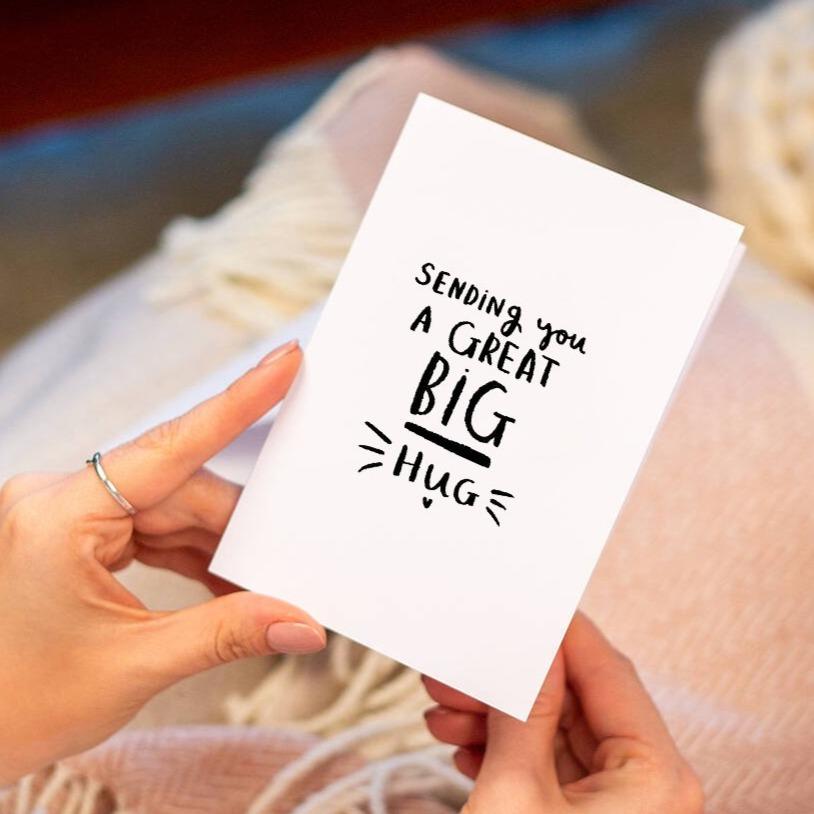 SENDiNg you
A GREAT
BiG
HuG